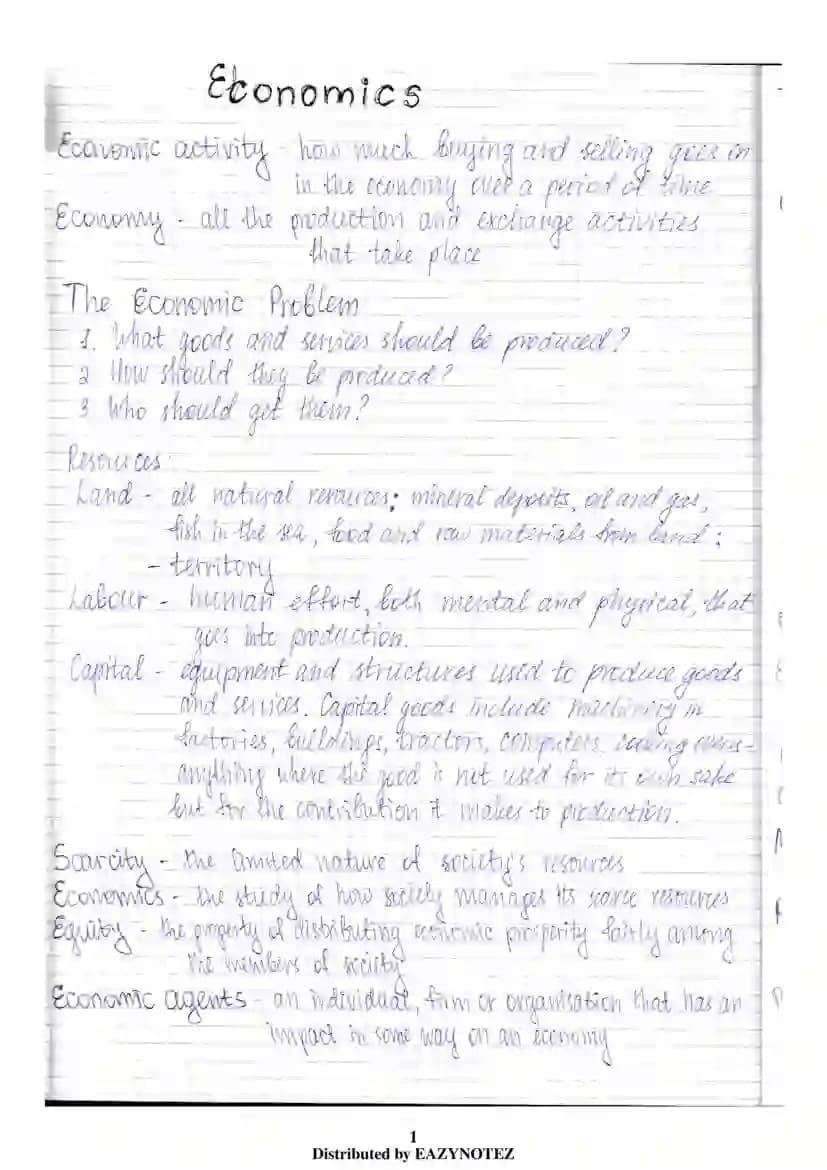 Economics
Economic activity - how much buying and selling goes on
in the economy over a period of time
Economy - all the production and exchange activities
that take place
The Economic Problem
1. What goods and services should be produced?
2 How should they be produced?
3 Who should get them?
Resources:
Land - all natural resources: mineral deposits, oil and gas,
fish in the sea, food and raw materials from land;
- territory
Labour - human effort, both mental and physical, that
goes into production.
Capital - equipment and structures used to produce goods
and services. Capital goods include machinery in
factories, buildings, tractors, computers,
anything where the good is not used for its own sake
but for the contribution it makes to production.
Scarcity - the limited nature of society's resources
Economics - the study of how society manages its scarce resources
Equity - the property of distributing economic prosperity fairly among
the members of society
Economic agents - an individual, firm or organisation that has an
impact in some way on an economy
1
Distributed by EAZYNOTEZ